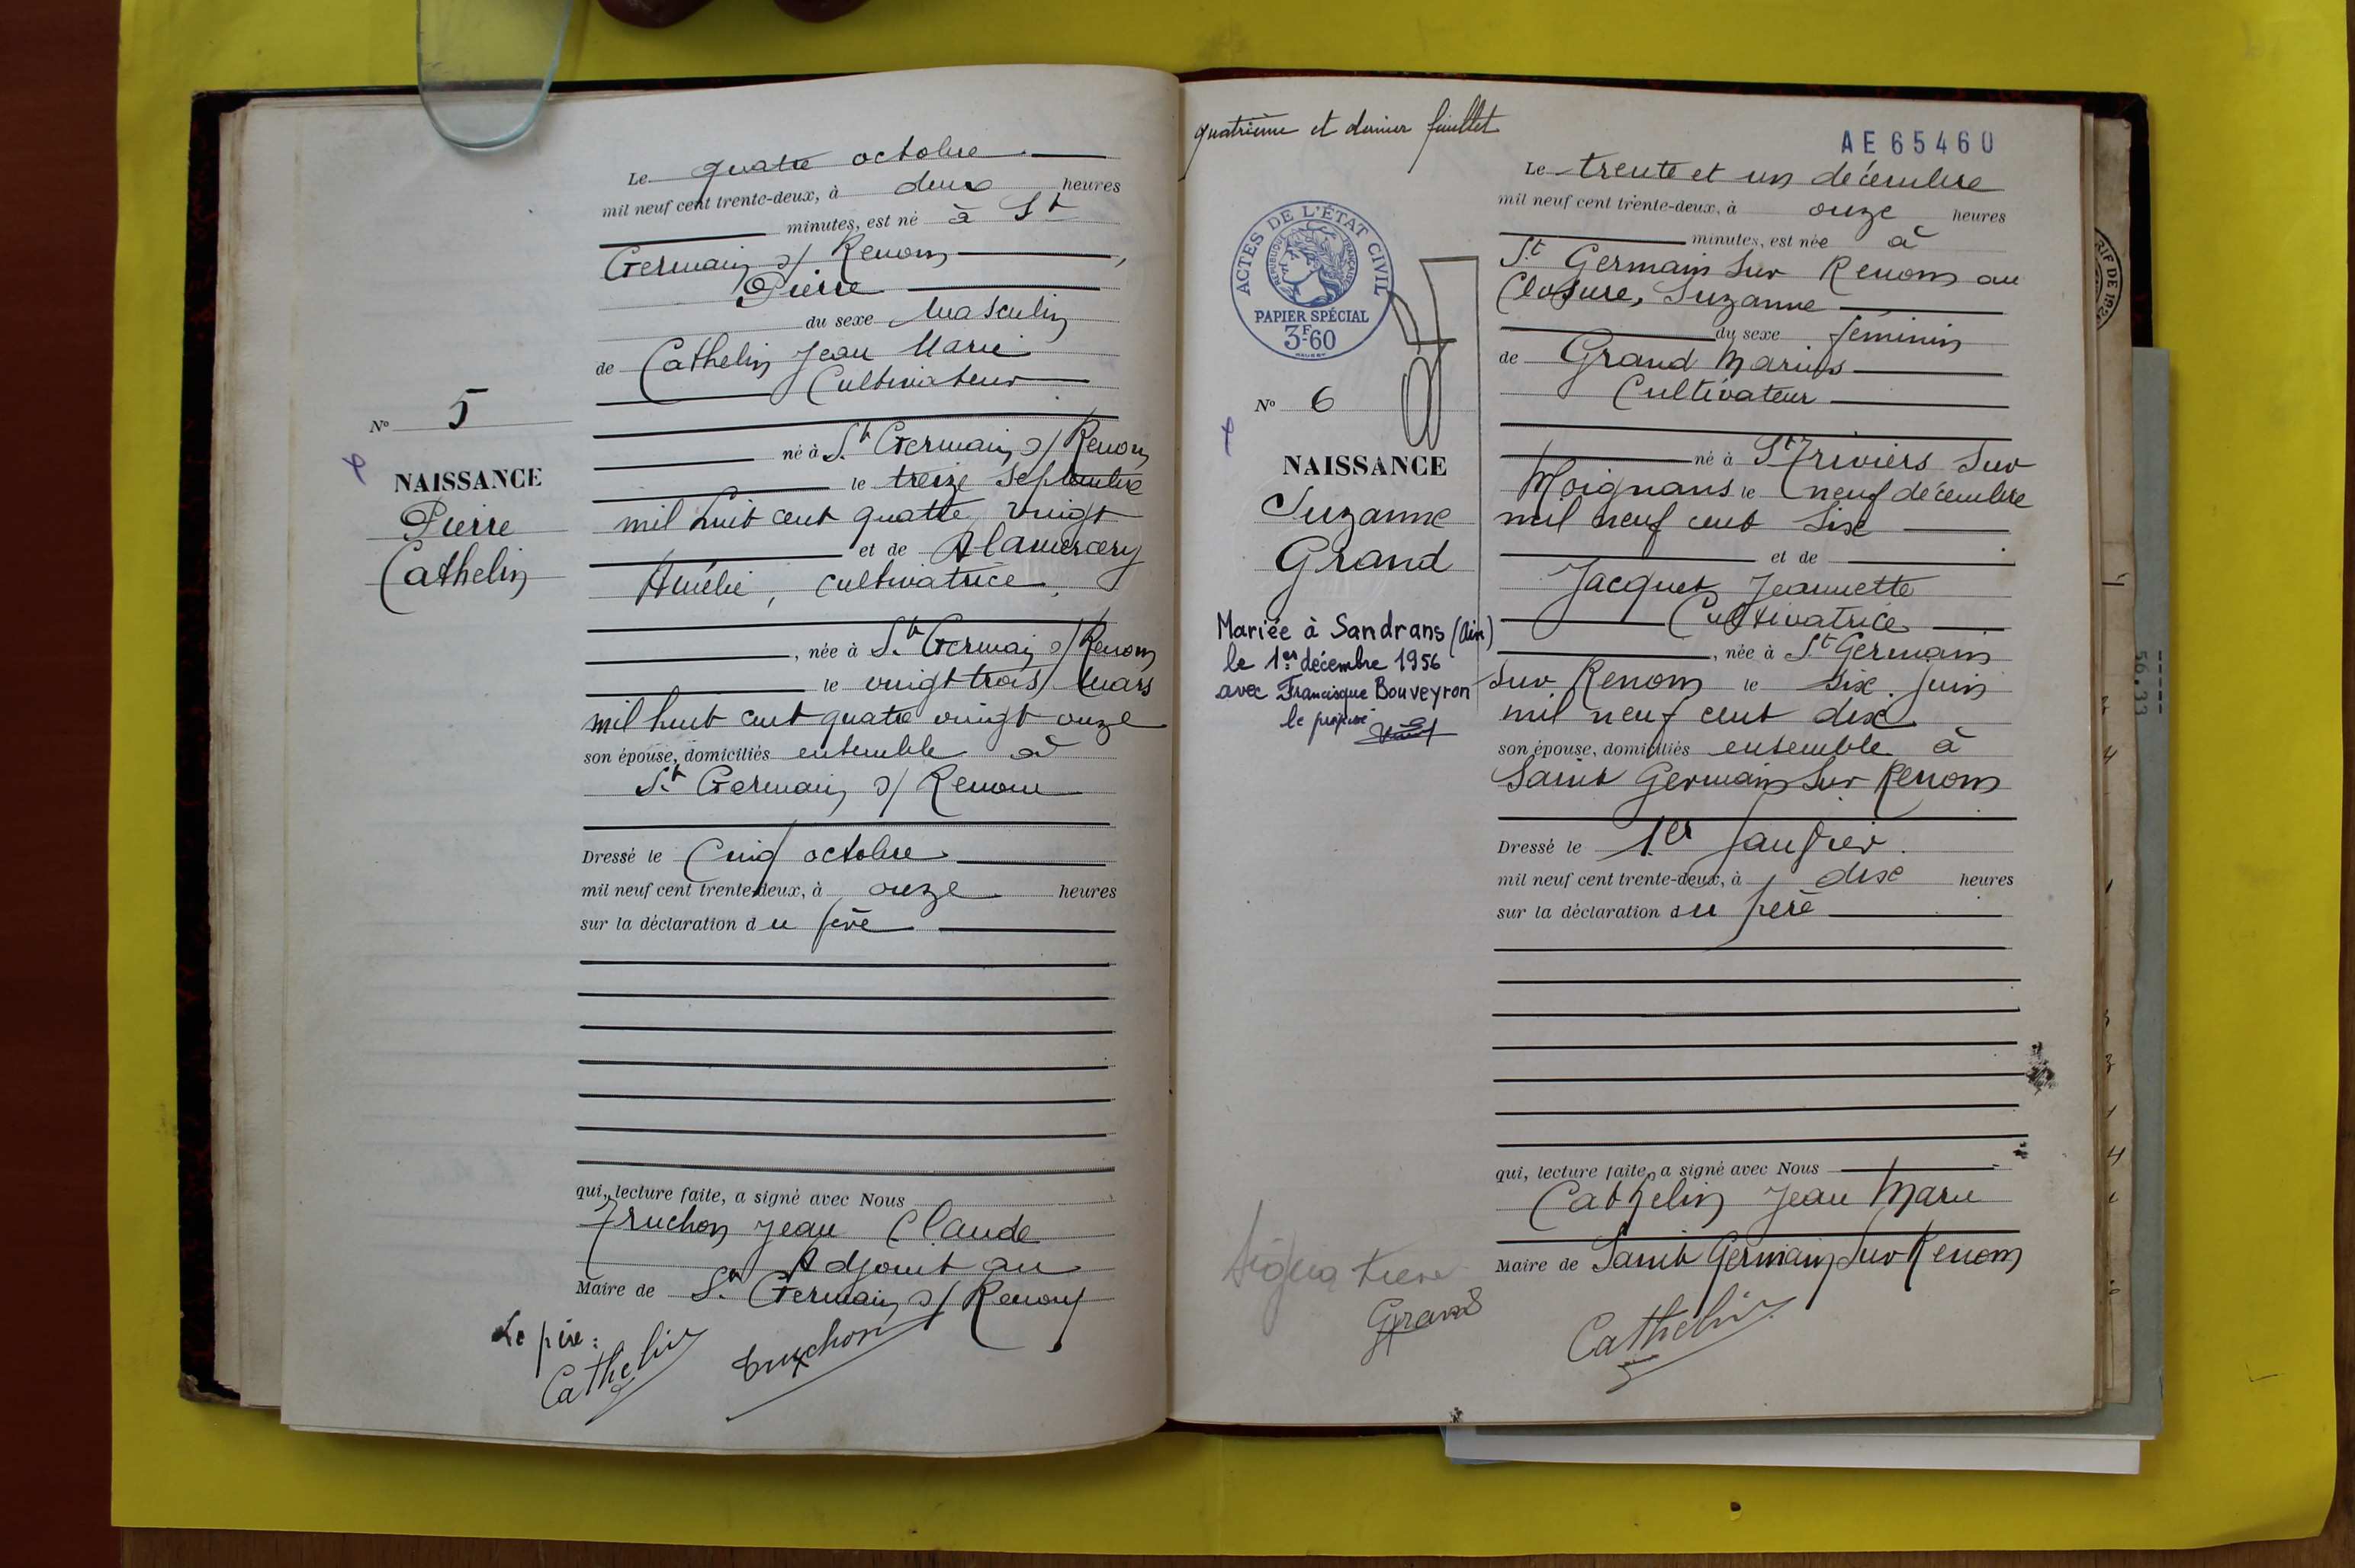 Le quatre octobre
mil neuf cent trente-deux, à deux heures
minutes, est né à St
Germain s/ Renom,
Pierre
du sexe Masculin
de Cathelin Jean Marie
Cultivateur
né à St Germain s/ Renom
le treize Septembre
mil huit cent quatre vingt
et de Alamercery
Amélie, cultivatrice,
, née à St Germain s/ Renom
le vingt trois Mars
mil huit cent quatre vingt onze
son épouse, domiciliés ensemble à
St Germain s/ Renom
Dressé le Cinq octobre
mil neuf cent trente-deux, à onze heures
sur la déclaration du père
qui, lecture faite, a signé avec Nous
Truchon Jean Claude
Adjoint au
Maire de St Germain s/ Renom
Le père :
Cathelin
Truchon
No 5
NAISSANCE
Pierre
Cathelin
quatrième et dernier feuillet
AE 65460
ACTES DE L'ÉTAT CIVIL
RÉPUBLIQUE FRANÇAISE
PAPIER SPÉCIAL
3F60
No 6
NAISSANCE
Suzanne
Grand
Mariée à Sandrans (Ain)
le 1er décembre 1956
avec Francisque Bouveyron
le
Le trente et un décembre
mil neuf cent trente-deux, à onze heures
minutes, est née à
St Germain Sur Renom au
Closure, Suzanne
du sexe féminin
de Grand Marius
Cultivateur
né à St Triviers Sur
Moignans le neuf décembre
mil neuf cent Six
et de
Jacquet Jeannette
Cultivatrice
, née à St Germain
Sur Renom le Six Juin
mil neuf cent dix
son épouse, domiciliés ensemble à
Saint Germain Sur Renom
Dressé le 1er Janvier.
mil neuf cent trente-deux, à dix heures
sur la déclaration du père
qui, lecture faite, a signé avec Nous
Cathelin Jean Marie
Maire de Saint Germain Sur Renom
Signature
Grand
Cathelin